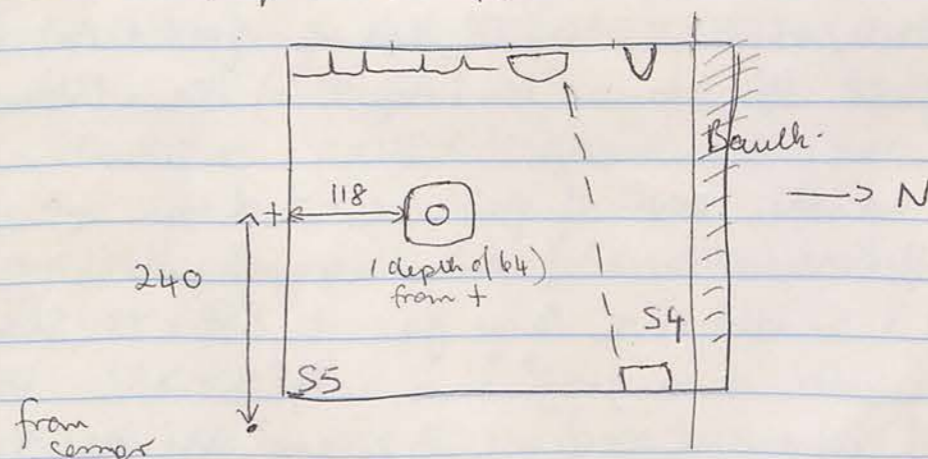 Baulk.
→ N
118
+
240
(depth of 64)
from +
S4
S5
from
corner